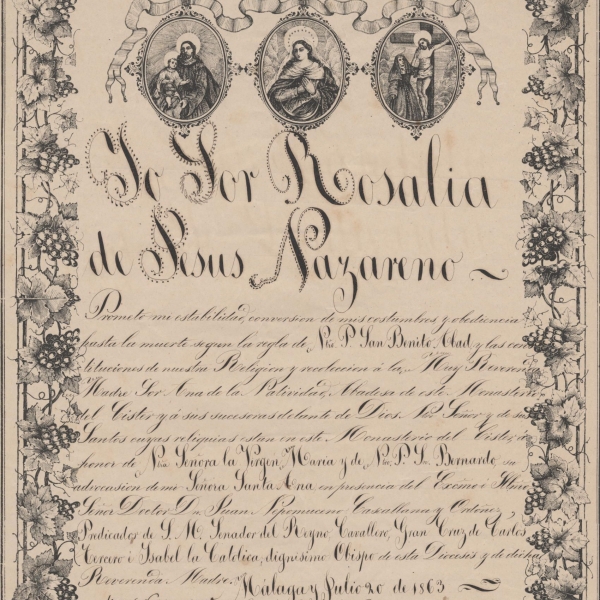 Yo Sor Rosalia
de Jesus Nazareno ~
Prometo mi estabilidad, conversion de mis costumbres y obediencia
hasta la muerte segun la regla de Ntro. P. San Benito Abad, y las con
tituciones de nuestra Religion y recoleccion á la Muy Reveren
Madre Sor Ana de la Natividad, Abadesa de este Monaster
del Cister y á sus sucesoras delante de Dios Ntro. Señor y de su
Santos cuyas reliquias estan en este Monasterio del Cister, á
honor de Ntra. Señora la Virgen Maria y de Ntro. P. Sn. Bernardo, su
advocacion de mi Señora Santa Ana, en presencia del Excmo é Illmo
Señor Doctor Dn. Juan Nepomuceno Cascallana y Ordoñez
Predicador de S. M. Senador del Reyno, Cavallero, Gran Cruz de Carlos
Tercero é Isabel la Catolica, dignisimo Obispo de esta Diocesis y de dicha
Reverenda Madre. Málaga y Julio 20 de 1863